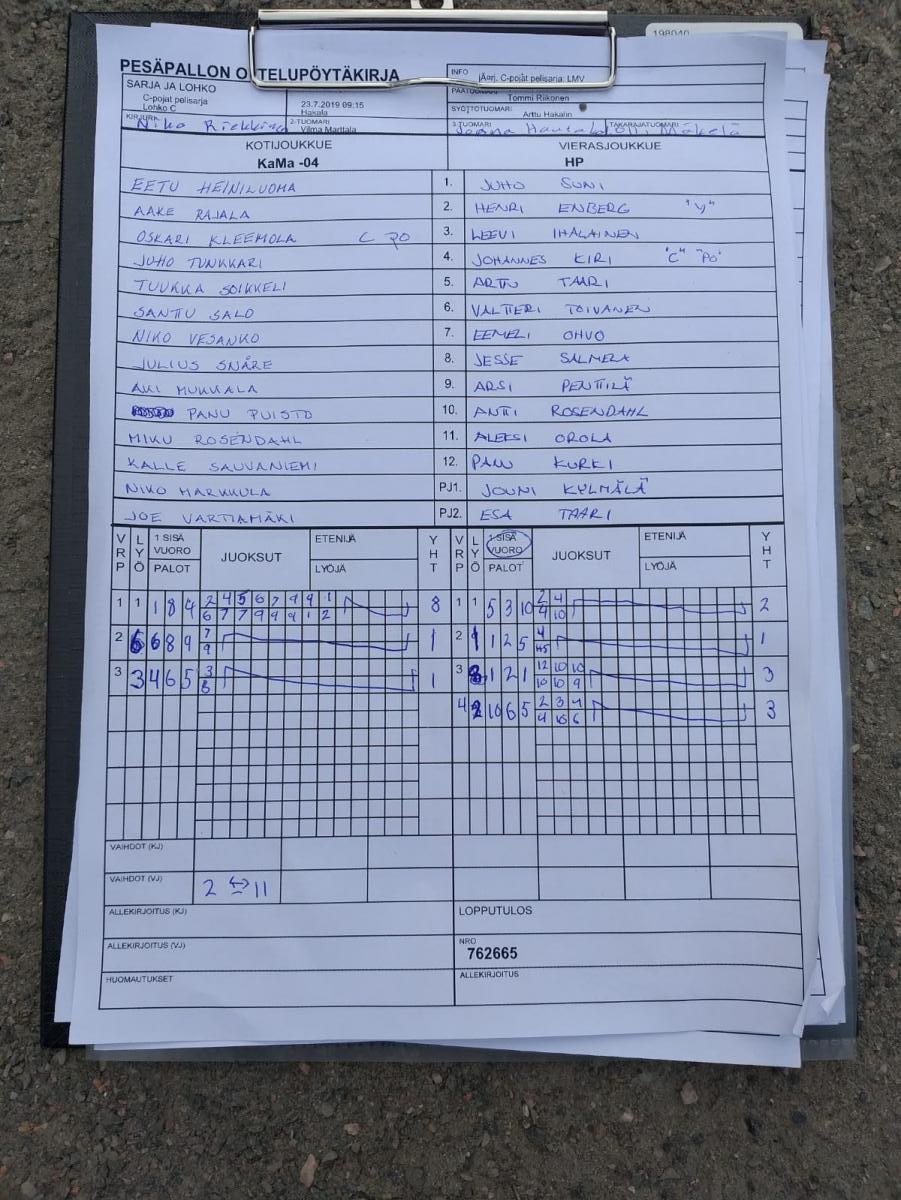 198040
PESÄPALLON O TELUPÖYTÄKIRJA
INFO jÄorj. C-pojat pelisarja: LMV
SARJA JA LOHKO
C-pojat pelisarja
Lohko C
23.7.2019 09:15
Hakala
Tommi Riikonen
SYÖTTÖTUOMARI
Arttu Hakalin
KIRJURI Niko
2-TUOMARI
Vilma Marttala
3-TUOMARI
TAKARAJATUOMARI
Olli Mäkelä
KOTIJOUKKUE VIERASJOUKKUE
KaMa -04 HP
EETU HEINILUOMA 1. JUHO SUNI
AAKE RAJALA 2. HENRI ENBERG "V"
OSKARI KLEEMOLA C PO 3. LEEVI IHALAINEN
JUHO TUNKKARI 4. JOHANNES KIRI "C" "PO"
TUUKKA SOIKKELI 5. ARTTU TAARI
SANTTU SALO 6. VALTTERI TOIVANEN
NIKO VESANKO 7. EEMELI OHVO
JULIUS SNÅRE 8. JESSE SALMELA
AKI MUKKALA 9. ARSI PENTTILÄ
PANU PUISTO 10. ANTTI ROSENDAHL
MIKU ROSENDAHL 11. ALEKSI OROLA
KALLE SAUVANIEMI 12. PANU KURKI
NIKO MARKKULA PJ1. JOUNI KYLMÄLÄ
JOE VARTIAMÄKI PJ2. ESA TAARI
VRP LYÖ 1 SISÄ VUORO PALOT JUOKSUT ETENIJÄ LYÖJÄ YHT VRP LYÖ 1 SISÄ VUORO PALOT JUOKSUT ETENIJÄ LYÖJÄ YHT
1 1 1 8 4 2 4 5 6 7 9 9 1 8 1 1 5 3 10 2 4 2
6 7 7 9 9 9 1 2 4 10
2 6 6 8 9 7 1 2 9 1 2 5 4 1
9 +5
3 3 4 6 5 3 1 3 8 1 2 1 12 10 10 3
8 10 10 9
4 2 10 6 5 2 3 4 3
4 10 6
VAIHDOT (KJ)
VAIHDOT (VJ) 2 ↔ 11
ALLEKIRJOITUS (KJ) LOPPUTULOS
ALLEKIRJOITUS (VJ) NRO
762665
HUOMAUTUKSET ALLEKIRJOITUS